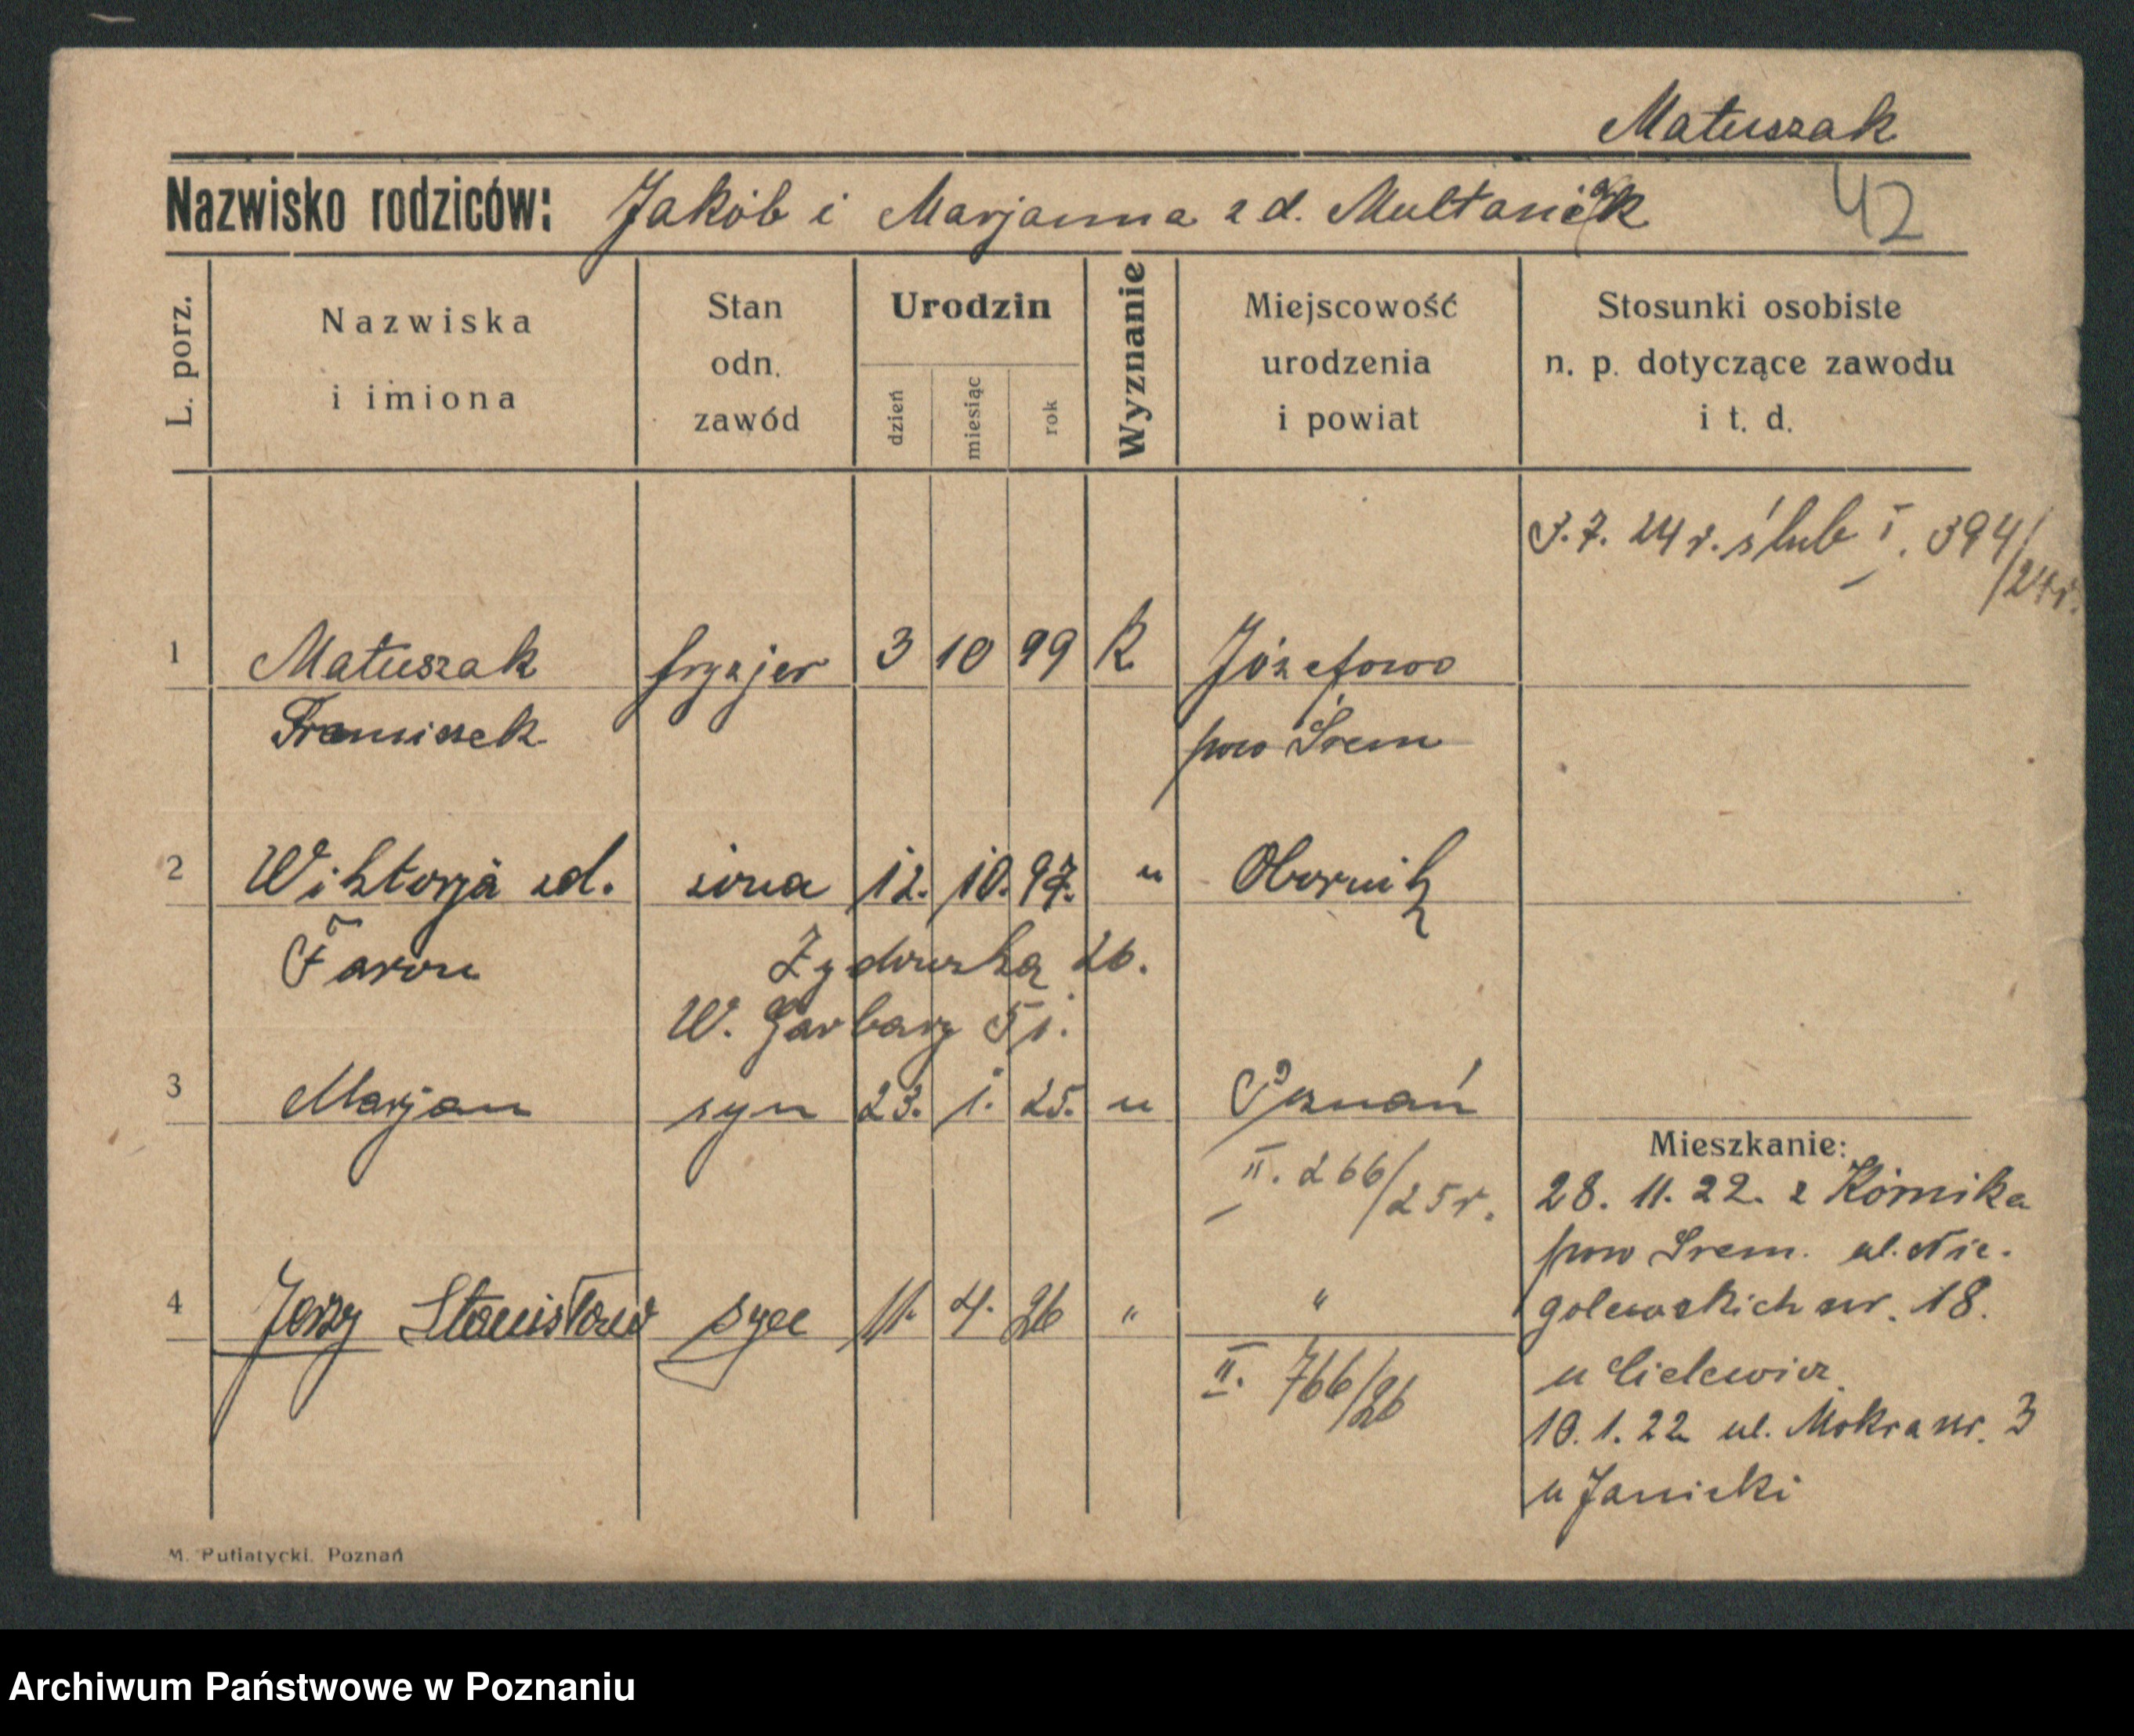 Matuszak
Nazwisko rodziców: Jakób i Marjanna z d. Multaniak
42
L. porz.
Nazwiska i imiona
Stan odn. zawód
Urodzin
dzień miesiąc rok
Wyznanie
Miejscowość urodzenia i powiat
Stosunki osobiste n. p. dotyczące zawodu i t. d.
3.7. 24 r. ślub I. 394/24 r.
1 Matuszak fryzjer 3 10 99 R. Józefowo
Franciszek pow Śrem
2 Wiktorja zd. żona 12. 10. 97. " Oborniki
Faron Żydowska 26.
W. Garbary 51.
3 Marjan syn 23. 1. 25. " Poznań
II. 266/25 r.
4 Jerzy Stanisław syn 11. 4. 26 " "
II. 766/26
Mieszkanie:
28. 11. 22. z Kórnika
pow Śrem. ul. Nie-
golewskich nr. 18.
u Cielewicz
10. 1. 22 ul. Mokra nr. 3
u Janicki
M. Putiatycki. Poznań
Archiwum Państwowe w Poznaniu